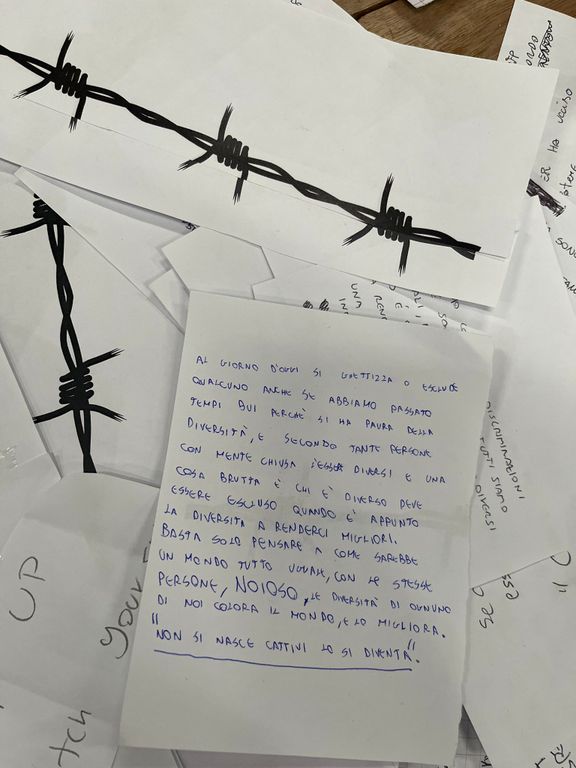 AL GIORNO D'OGGI SI GHETTIZZA O ESCLUDE
QUALCUNO ANCHE SE ABBIAMO PASSATO
TEMPI BUI PERCHÈ SI HA PAURA DELLA
DIVERSITÀ, E SECONDO TANTE PERSONE
CON MENTE CHIUSA L'ESSER DIVERSI È UNA
COSA BRUTTA E CHI È DIVERSO DEVE
ESSERE ESCLUSO QUANDO E' APPUNTO
LA DIVERSITÀ A RENDERCI MIGLIORI.
BASTA SOLO PENSARE A COME SAREBBE
UN MONDO TUTTO UGUALE, CON LE STESSE
PERSONE, NOIOSO, LE DIVERSITÀ DI OGNUNO
DI NOI COLORA IL MONDO, E LO MIGLIORA.
"NON SI NASCE CATTIVI LO SI DIVENTA".
DISCRIMINAZIONI
TUTTI SIAMO
DIVERSI
ER HA UCCISO
SONO
UP
your
tch
se